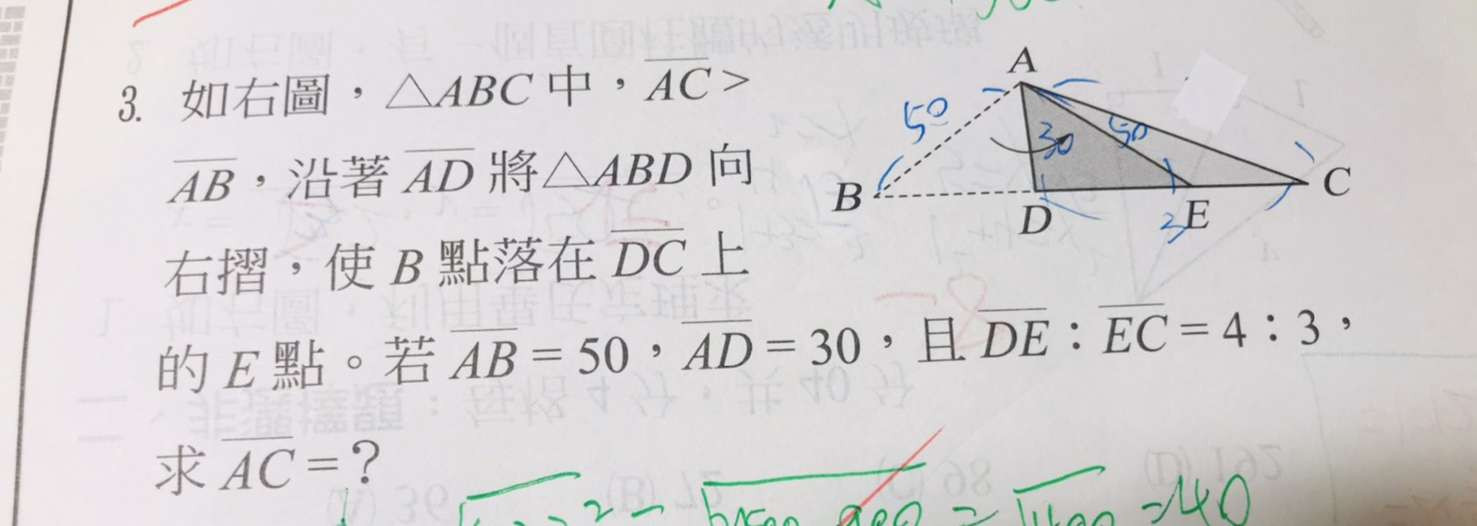 3. 如右圖，△ABC 中，AC >
AB，沿著 AD 將△ABD 向
右摺，使 B 點落在 DC 上
的 E 點。若 AB = 50，AD = 30，且 DE：EC = 4：3，
求 AC = ?
A
50
30
50
B
D
E
C
= 40